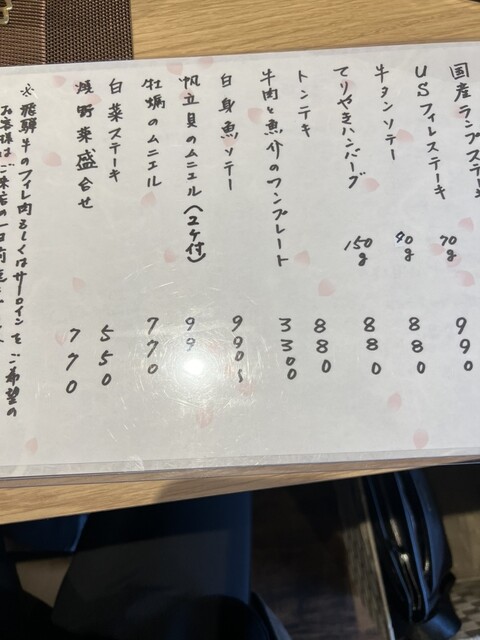 国産ランプステーキ 70g 990
USフィレステーキ 90g 880
牛タンソテー 880
てりやきハンバーグ 150g 880
トンテキ 880
牛肉と魚介のワンプレート 3300
白身魚ソテー 990〜
帆立貝のムニエル(2ケ付) 99
牡蠣のムニエル 770
白菜ステーキ 550
焼野菜盛合せ 770
※飛騨牛のフィレ肉もしくはサーロインをご希望の
お客様はご来店の一日前迄に